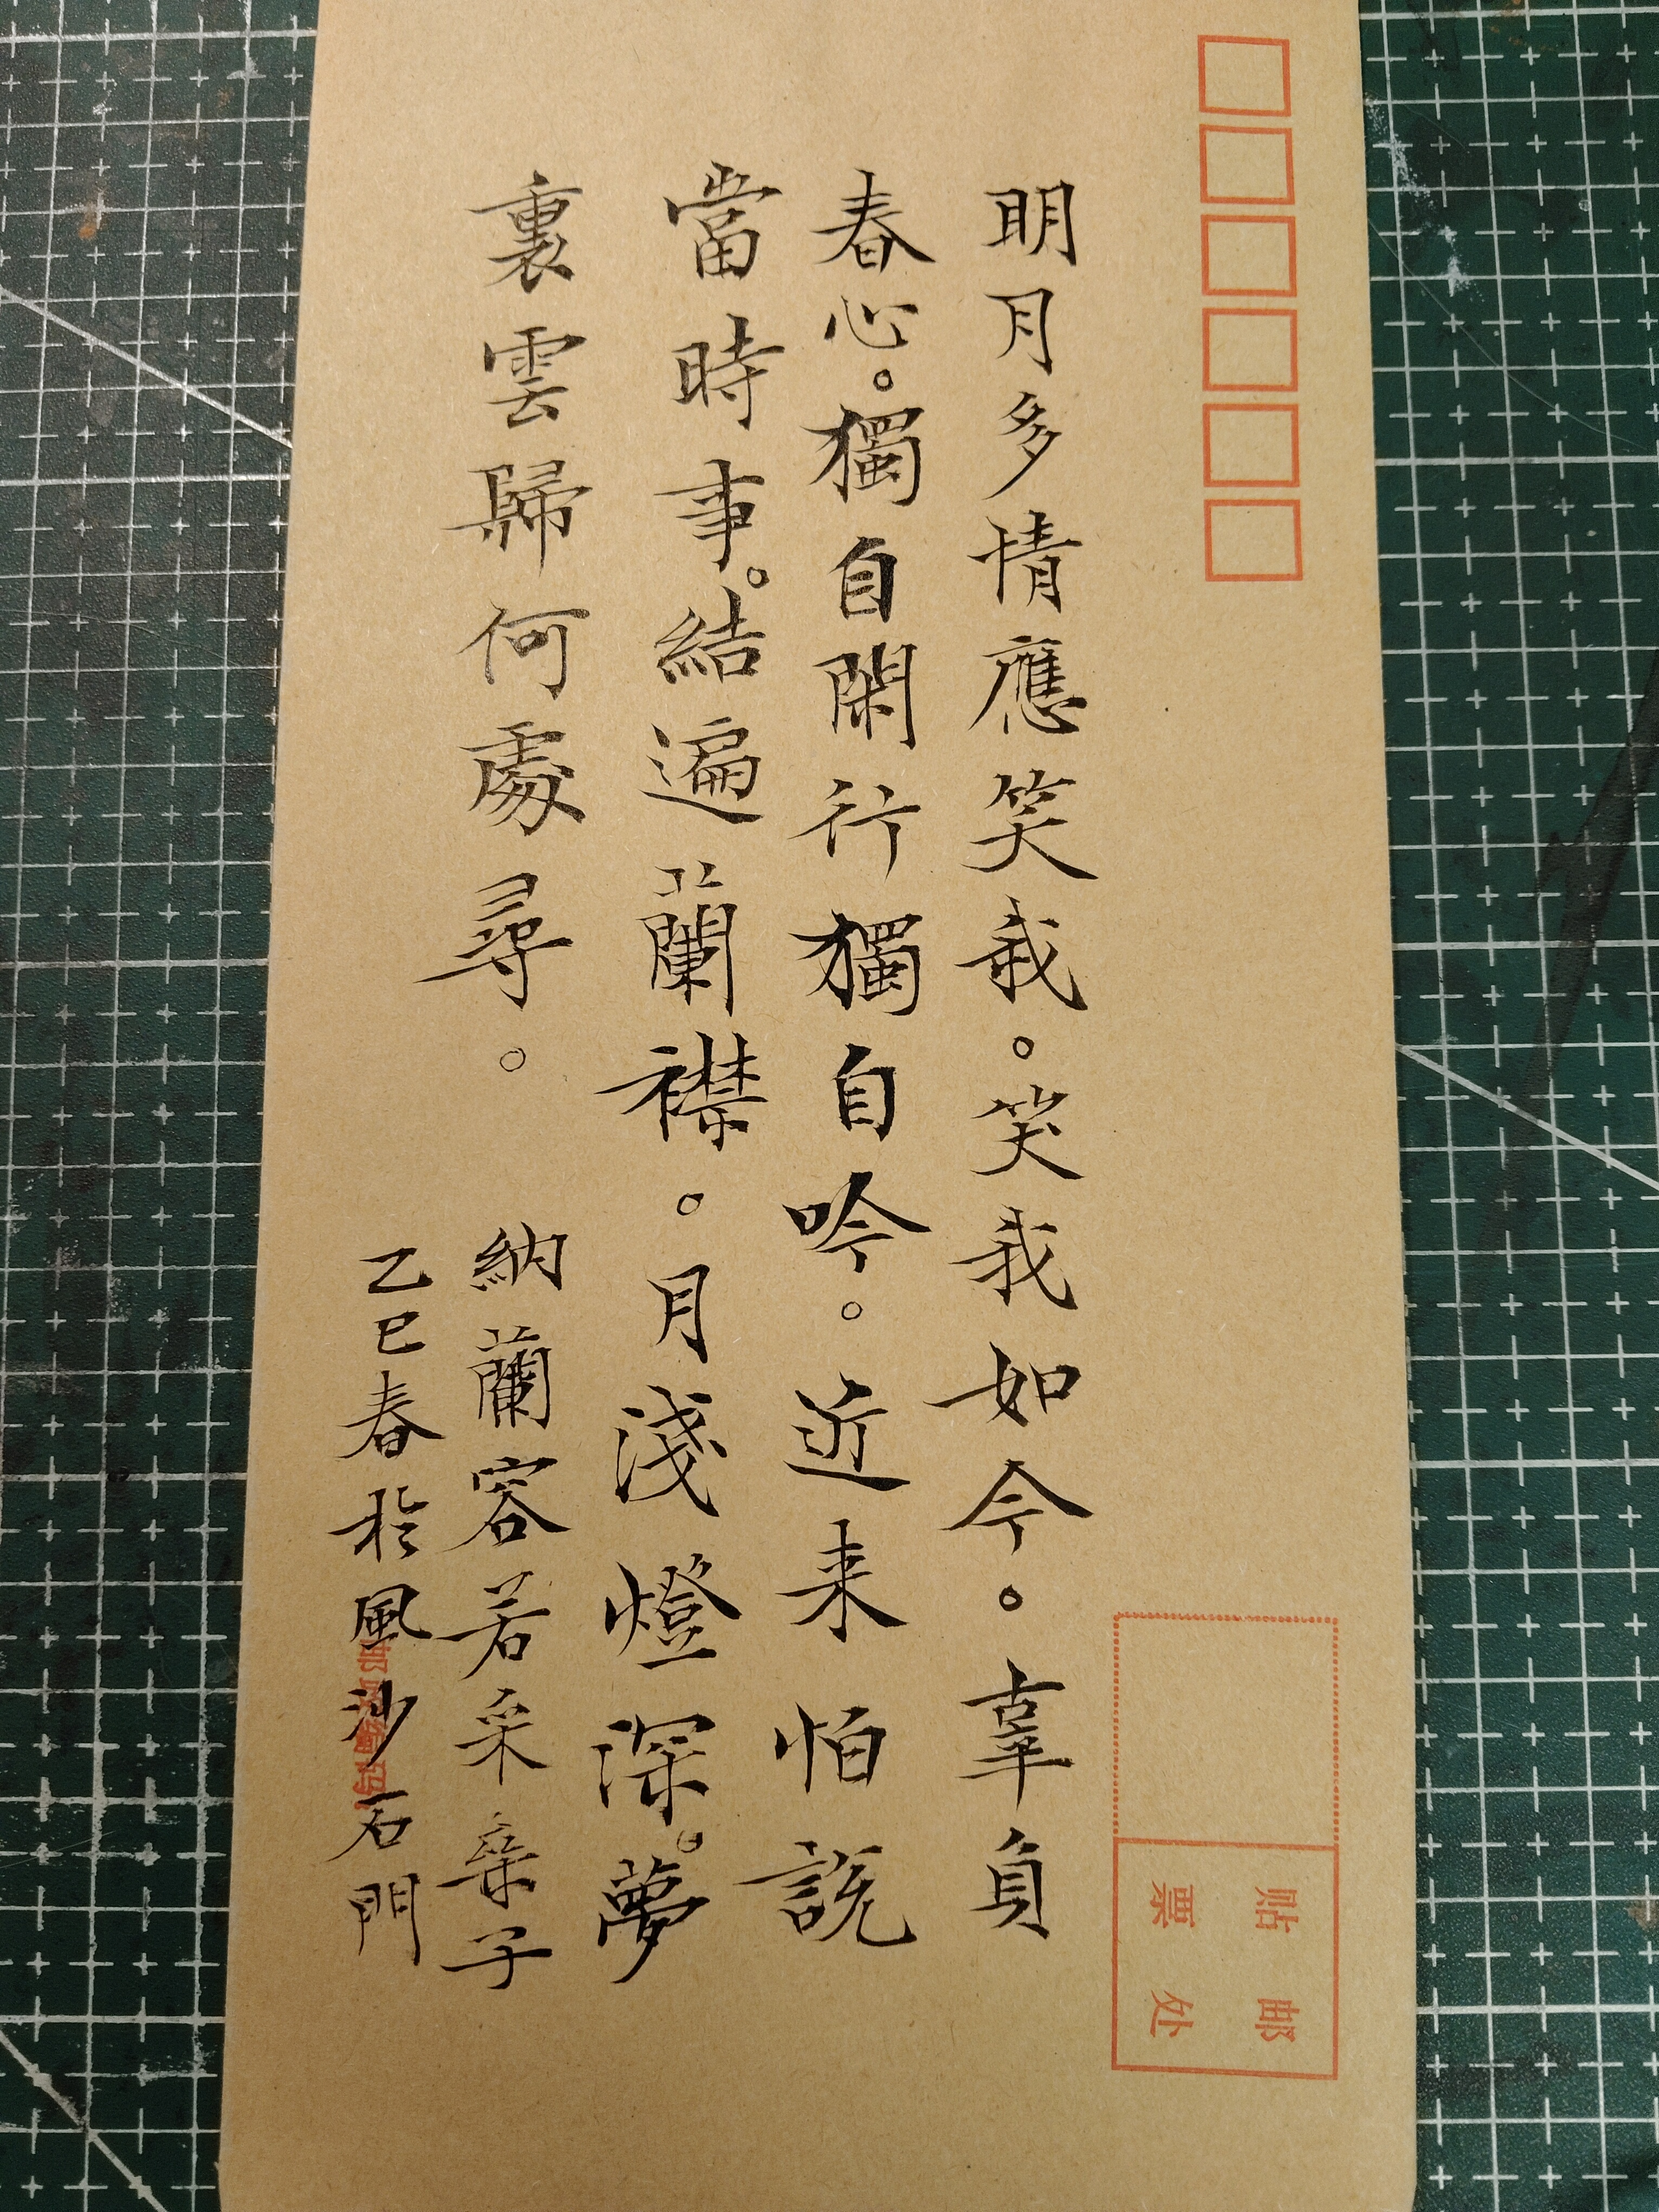 明月多情應笑我。笑我如今。辜負
春心。獨自閑行獨自吟。近来怕說
當時事。結遍蘭襟。月淺燈深。夢
裏雲歸何處尋。
納蘭容若采桑子
乙巳春於風沙石門
贴邮
票处
邮政编码